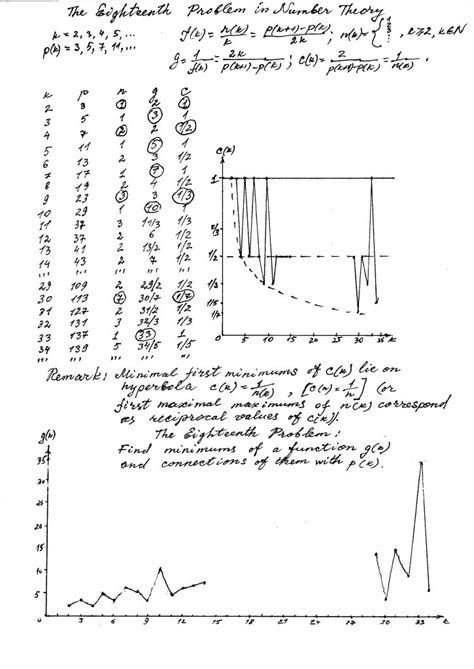 The Eighteenth Problem in Number Theory
k = 2, 3, 4, 5, ...
p(k) = 3, 5, 7, 11, ...
f(k) = n(k)/k = (p(k+1)-p(k))/2k ; n(k) = { 1 2 3 ... , k≥2, k∈N
g = 1/f(k) = 2k/(p(k+1)-p(k)) ; c(k) = 2/(p(k+1)-p(k)) = 1/n(k) .
k p n g c
2 3 1 2 1
3 5 1 3 1
4 7 2 2 1/2
5 11 1 5 1
6 13 2 3 1/2
7 17 1 7 1
8 19 2 4 1/2
9 23 3 3 1/3
10 29 1 10 1
11 37 3 11/3 1/3
12 37 2 6 1/2
13 41 2 13/2 1/2
14 43 2 7 1/2
... ... ... ... ...
29 109 2 29/2 1/2
30 113 7 30/7 1/7
31 127 2 31/2 1/2
32 131 3 32/3 1/3
33 137 1 33 1
34 139 5 34/5 1/5
... ... ... ... ...
c(k)
1
1/2
1/3
1/5
1/7
0 5 10 15 20 25 30 35 k
Remark: Minimal first minimums of c(k) lie on
hyperbola c(k) = 1/n(k) , [c(k) = 1/n] (or
first maximal maximums of n(k) correspond
as reciprocal values of c(k)).
The Eighteenth Problem:
Find minimums of a function g(k)
and connections of them with p(k).
g(k)
35
30
25
20
15
10
5
0 3 6 9 12 15 18 21 24 27 30 33 k